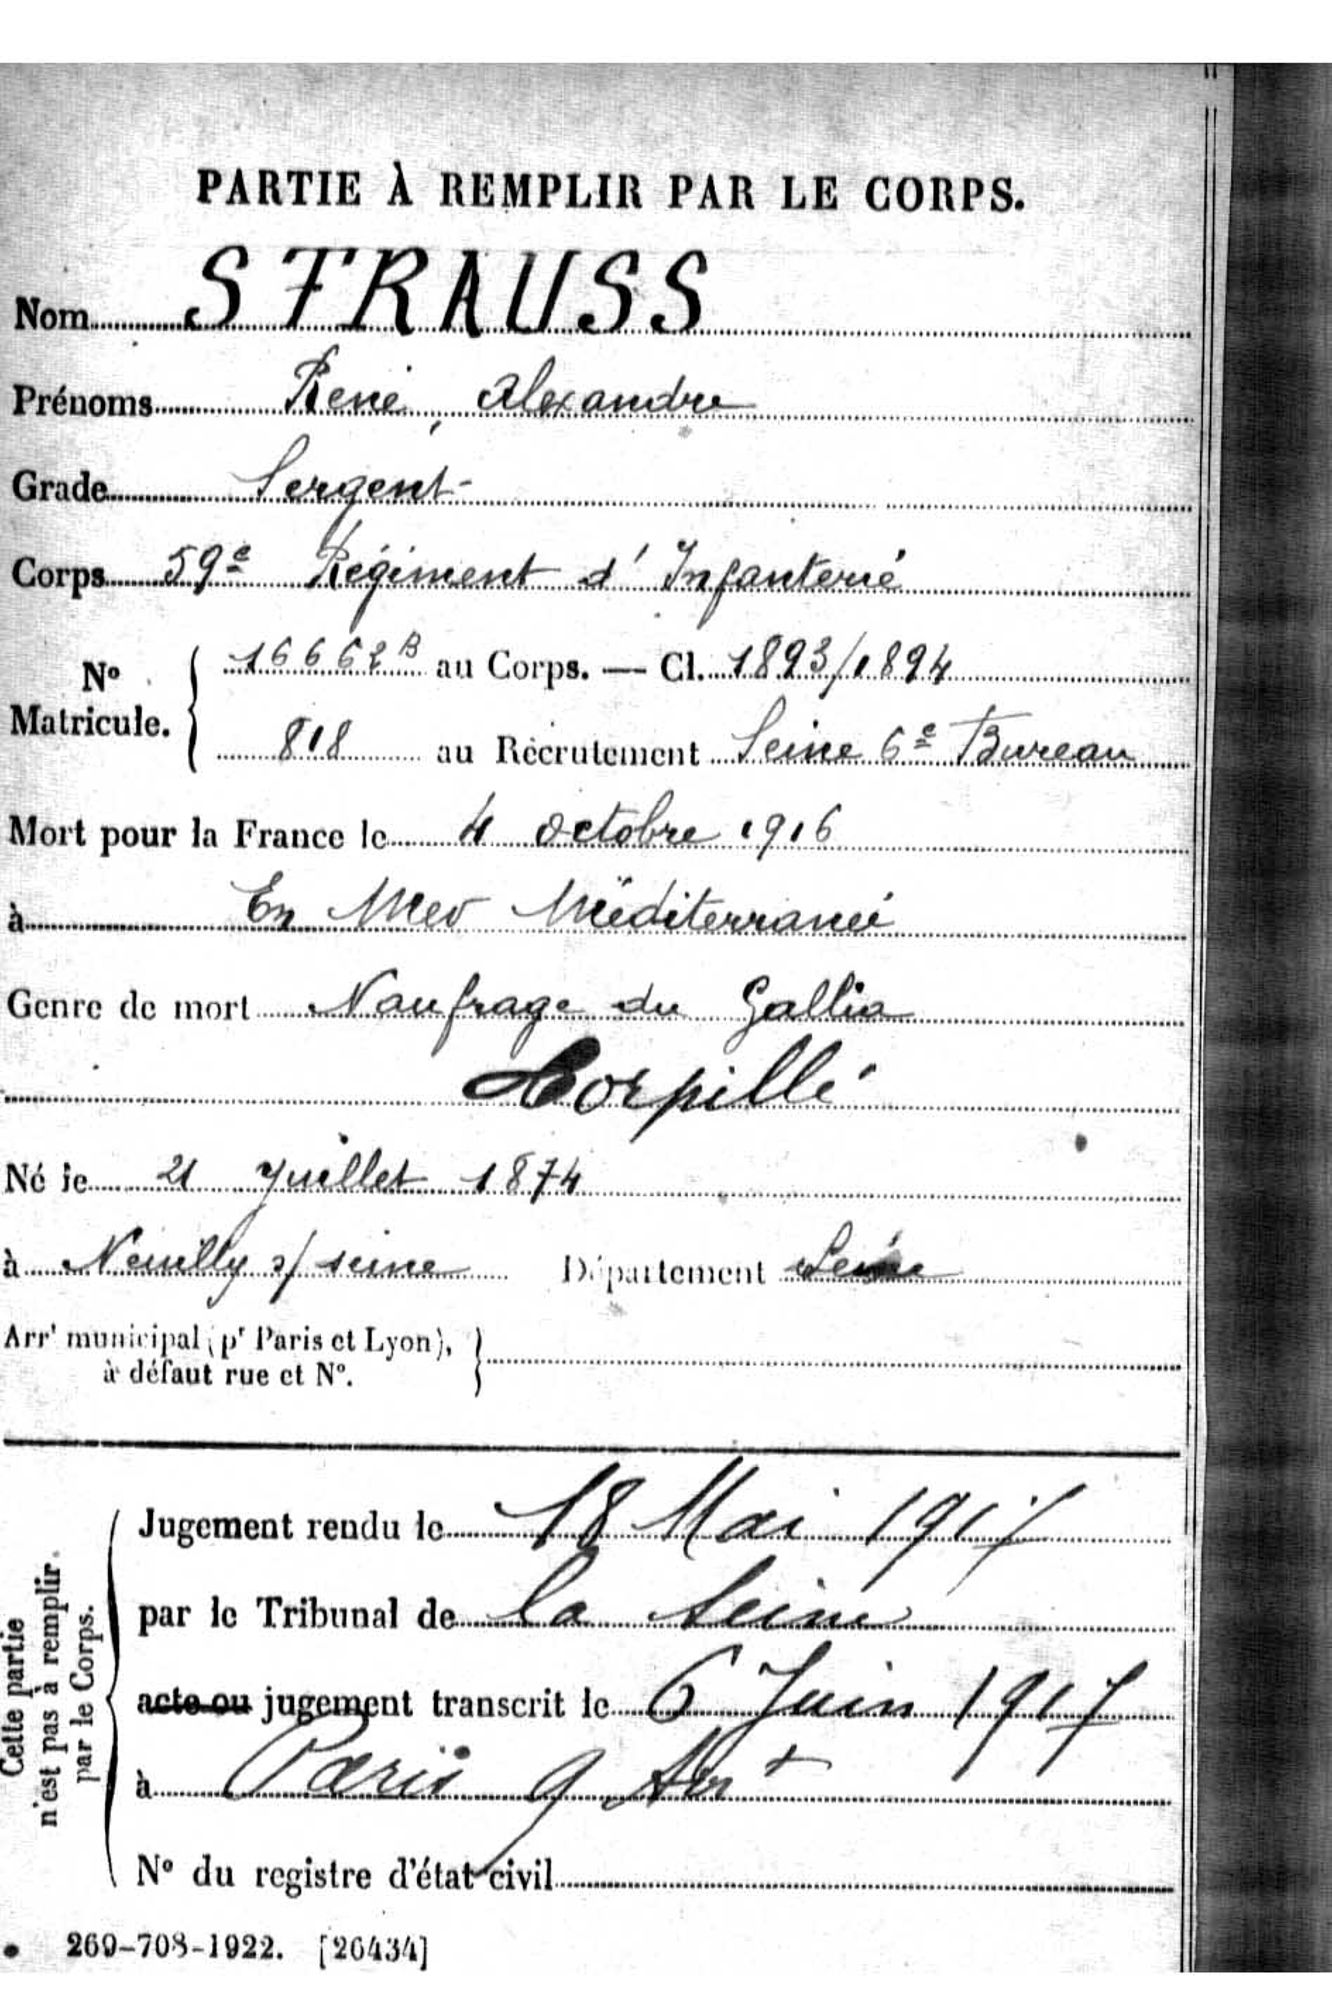 PARTIE À REMPLIR PAR LE CORPS.
Nom STRAUSS
Prénoms René, Alexandre
Grade Sergent
Corps 59e Régiment d'Infanterie
No Matricule. 16662B au Corps. — Cl. 1893/1894
818 au Recrutement Seine 6e Bureau
Mort pour la France le 4 octobre 1916
à En Mer Méditerranée
Genre de mort Naufrage du Gallia
Torpillé
Né le 21 Juillet 1874
à Neuilly s/ seine Département Seine
Arrt municipal (pr Paris et Lyon),
à défaut rue et No.
Cette partie
n'est pas à remplir
par le Corps.
Jugement rendu le 18 Mai 1917
par le Tribunal de la Seine
acte ou jugement transcrit le 6 Juin 1917
à Paris 9 Arrt
No du registre d'état civil
269-708-1922. [26434]